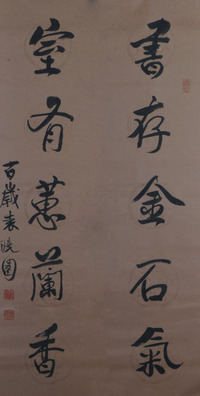 書存金石氣
室有蕙蘭香
百歲袁曉園